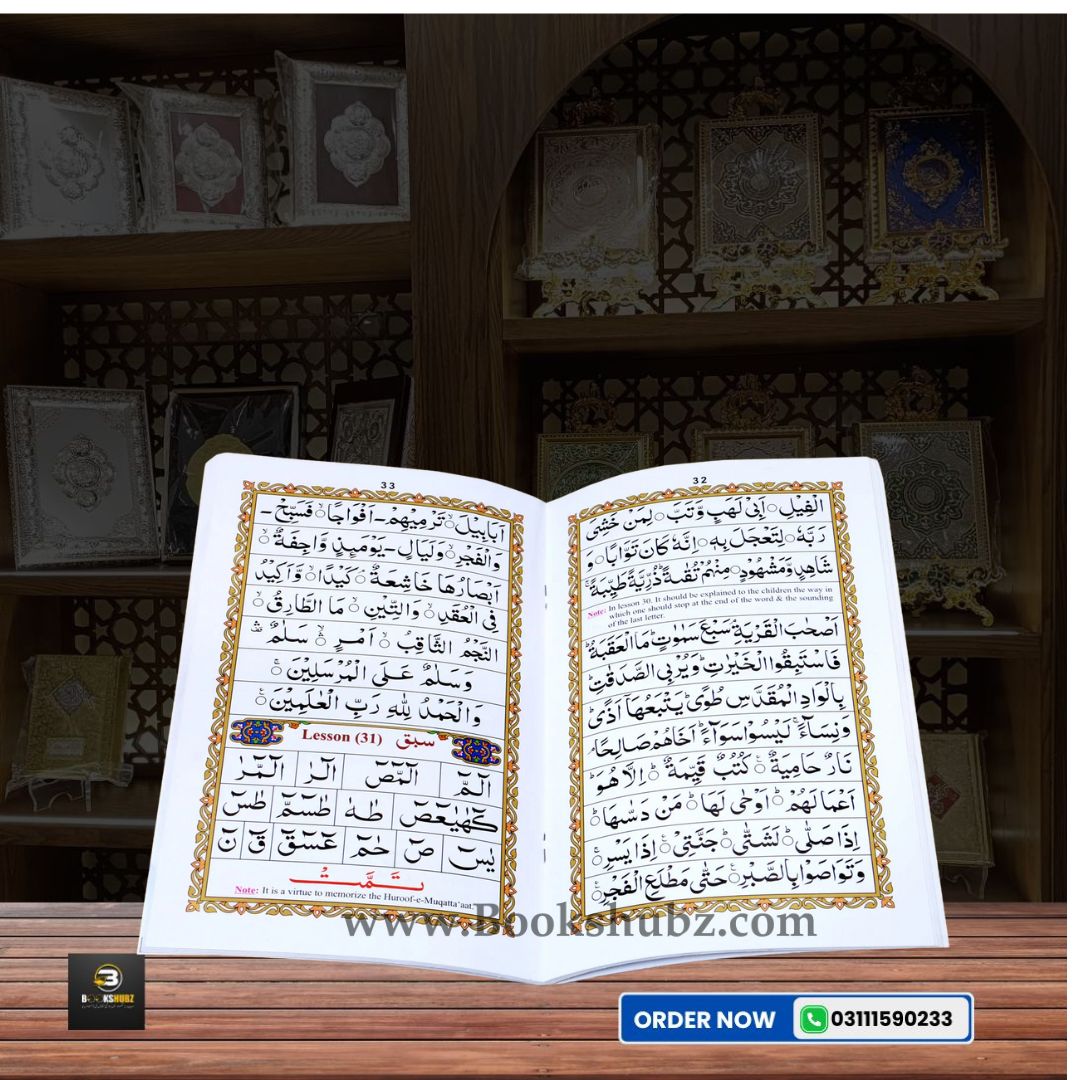 32
الْفِيْلِ ۝ اَبِىْ لَهَبٍ وَّتَبَّ ۝ لِمَنْ خَشِىَ
رَبَّهٗ ۝ لِتَعْجَلَ بِهٖ ۝ اِنَّهٗ كَانَ تَوَّابًا ۝ وَ
شَاهِدٍ وَّمَشْهُوْدٍ ۝ مِنْهُمْ تُقٰىةً ؕ ذُرِّيَّةً طَيِّبَةً ۚ
Note: In lesson 30. It should be explained to the children the way in
which one should stop at the end of the word & the sounding
of the last letter.
اَصْحٰبَ الْقَرْيَةِ ۘ سَبْعَ سَمٰوٰتٍ ؕ مَا الْعَقَبَةُ ؕ
فَاسْتَبِقُوا الْخَيْرٰتِ ؕ وَيُرْبِى الصَّدَقٰتِ ؕ
بِالْوَادِ الْمُقَدَّسِ طُوًى ؕ يَتْبَعُهَآ اَذًى ؕ
وَنِسَآءً ۚ لَيْسُوْا سَوَآءً ؕ اَخَاهُمْ صَالِحًا ۘ
نَارٌ حَامِيَةٌ ۝ كُتُبٌ قَيِّمَةٌ ؕ اِلَّا هُوَ ؕ
اَعْمَالَهُمْ ؕ اَوْحٰى لَهَا ؕ مَنْ دَسّٰىهَا ؕ
اِذَا صَلّٰى ؕ لَشَتّٰى ؕ جَنَّتِىْ ۝ اِذَا يَسْرِ ۚ
وَتَوَاصَوْا بِالصَّبْرِ ۝ حَتّٰى مَطْلَعِ الْفَجْرِ ۝
33
اَبَابِيْلَ ۙ تَرْمِيْهِمْ - اَفْوَاجًا ۙ فَسَبِّحْ -
وَالْفَجْرِ ۙ وَلَيَالٍ - يَوْمَئِذٍ وَّاجِفَةٌ ۙ
اَبْصَارُهَا خَاشِعَةٌ ۘ كَيْدًا ۙ وَّاَكِيْدُ
فِى الْعُقَدِ ۙ وَالتِّيْنِ ۙ مَا الطَّارِقُ ۙ
النَّجْمُ الثَّاقِبُ ۙ اَمْرٍ ۛ سَلٰمٌ
وَسَلٰمٌ عَلَى الْمُرْسَلِيْنَ ۚ
وَالْحَمْدُ لِلّٰهِ رَبِّ الْعٰلَمِيْنَ ۝
سبق Lesson (31)
الٓمّٓ الٓمّٓصٓ الٓرٰ الٓمّٓرٰ
كٓهٰيٰعٓصٓ طٰهٰ طٰسٓمّٓ طٰسٓ
يٰسٓ صٓ حٰمٓ عٓسٓقٓ قٓ نٓ
تَمَّتْ
Note: It is a virtue to memorize the Huroof-e-Muqatta'aat.
www.Bookshubz.com
BOOKSHUBZ
ORDER NOW 03111590233